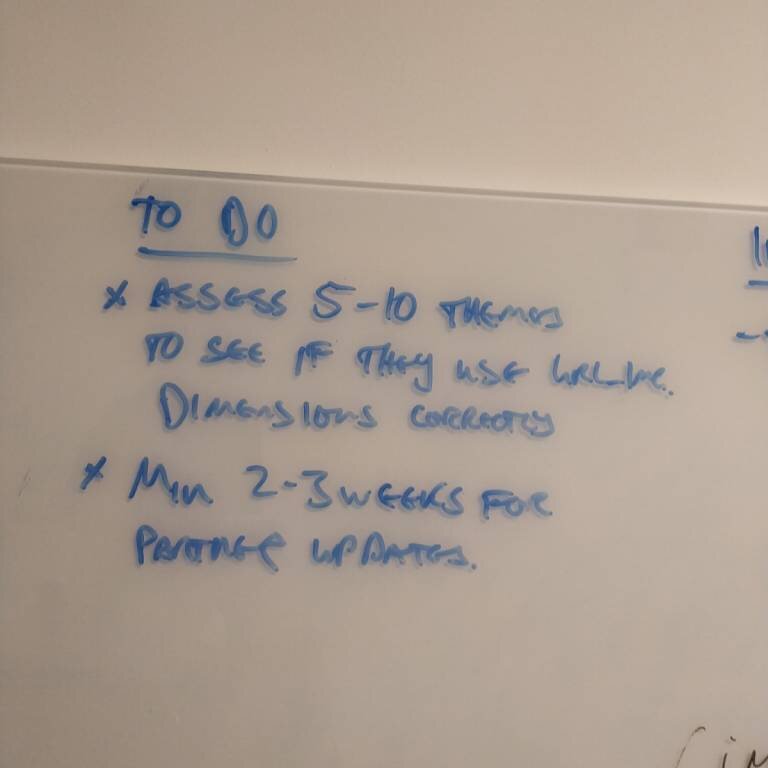 TO DO
x ASSESS 5-10 THEMES
TO SEE IF THEY USE
DIMENSIONS CORRECTLY
x MIN 2-3 WEEKS FOR
PARTNER UPDATES.